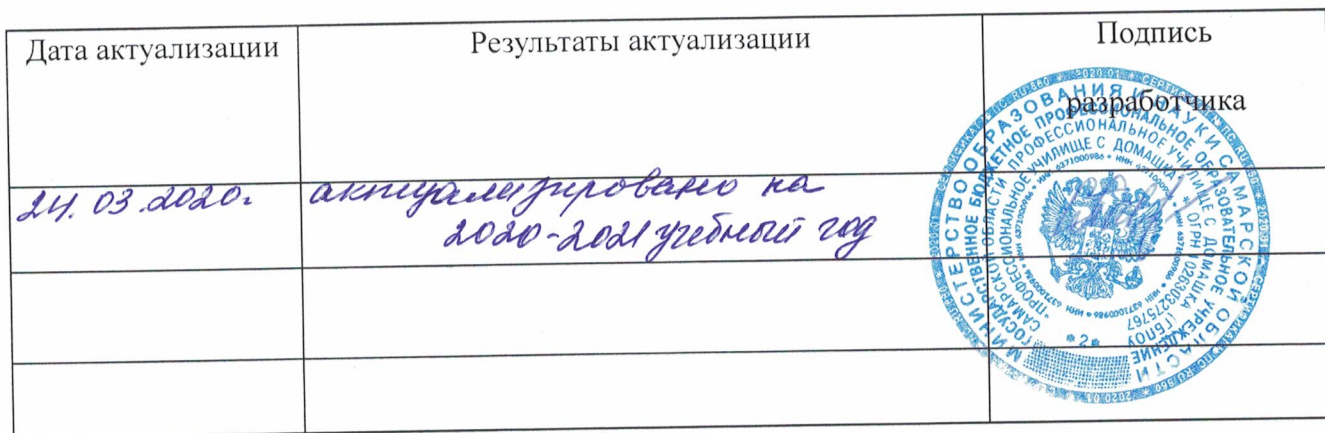 Дата актуализации
Результаты актуализации
Подпись
разработчика
24.03.2020г
актуализировано на
2020-2021 учебный год
МИНИСТЕРСТВО ОБРАЗОВАНИЯ И НАУКИ САМАРСКОЙ ОБЛАСТИ
ГОСУДАРСТВЕННОЕ БЮДЖЕТНОЕ ПРОФЕССИОНАЛЬНОЕ ОБРАЗОВАТЕЛЬНОЕ УЧРЕЖДЕНИЕ
САМАРСКОЙ ОБЛАСТИ ПРОФЕССИОНАЛЬНОЕ УЧИЛИЩЕ С ДОМАШКА (ГБПОУ
"ПРОФЕССИОНАЛЬНОЕ УЧИЛИЩЕ С ДОМАШКА * ОГРН 1026303275767
* ИНН 6371000986 * ИНН 6371000986
* 2 *